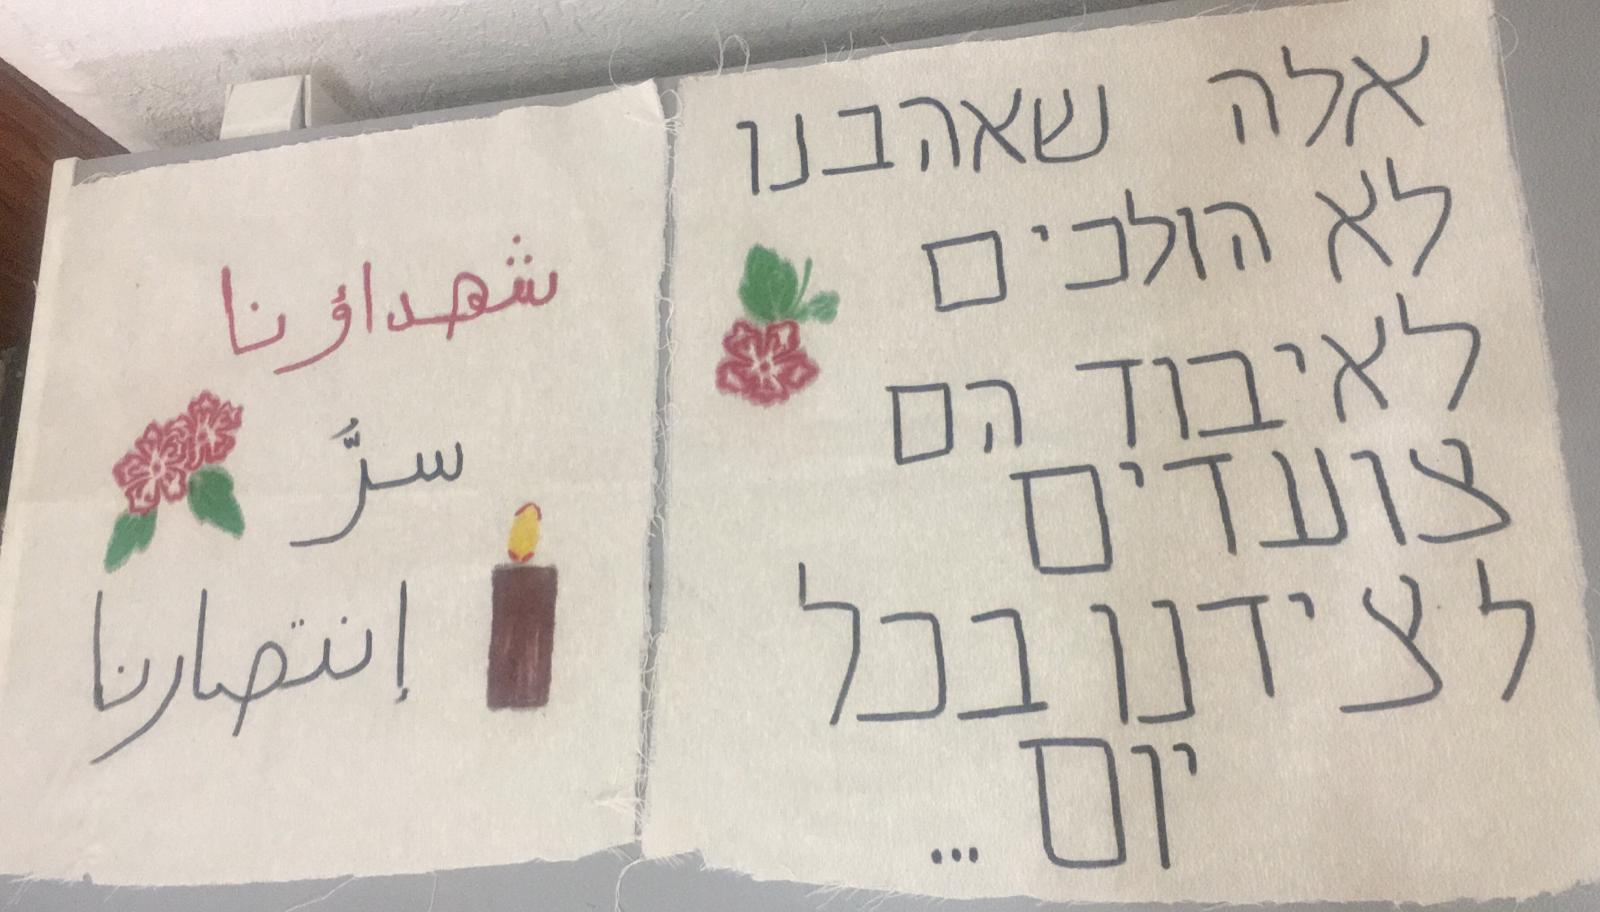 אלה שאהבנו
לא הולכים
לאיבוד הם
צועדים
לצידנו בכל
יום...
شهداؤنا
سرَّ
إنتصارنا